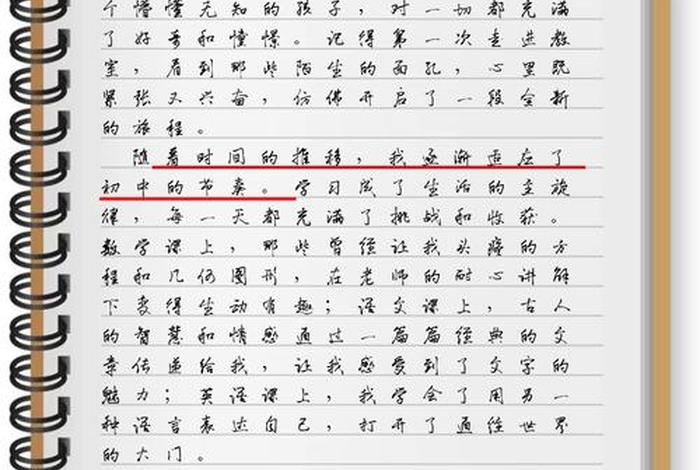 个懵懂无知的孩子，对一切都充满
了好奇和憧憬。记得第一次走进教
室，看到那些陌生的面孔，心里既
紧张又兴奋，仿佛开启了一段全新
的旅程。
随着时间的推移，我逐渐适应了
初中的节奏。学习成了生活的主旋
律，每一天都充满了挑战和收获。
数学课上，那些曾经让我头疼的方
程和几何图形，在老师的耐心讲解
下变得生动有趣；语文课上，古人
的智慧和情感通过一篇篇经典的文
章传递给我，让我感受到了文字的
魅力；英语课上，我学会了用另一
种语言表达自己，打开了通往世界
的大门。